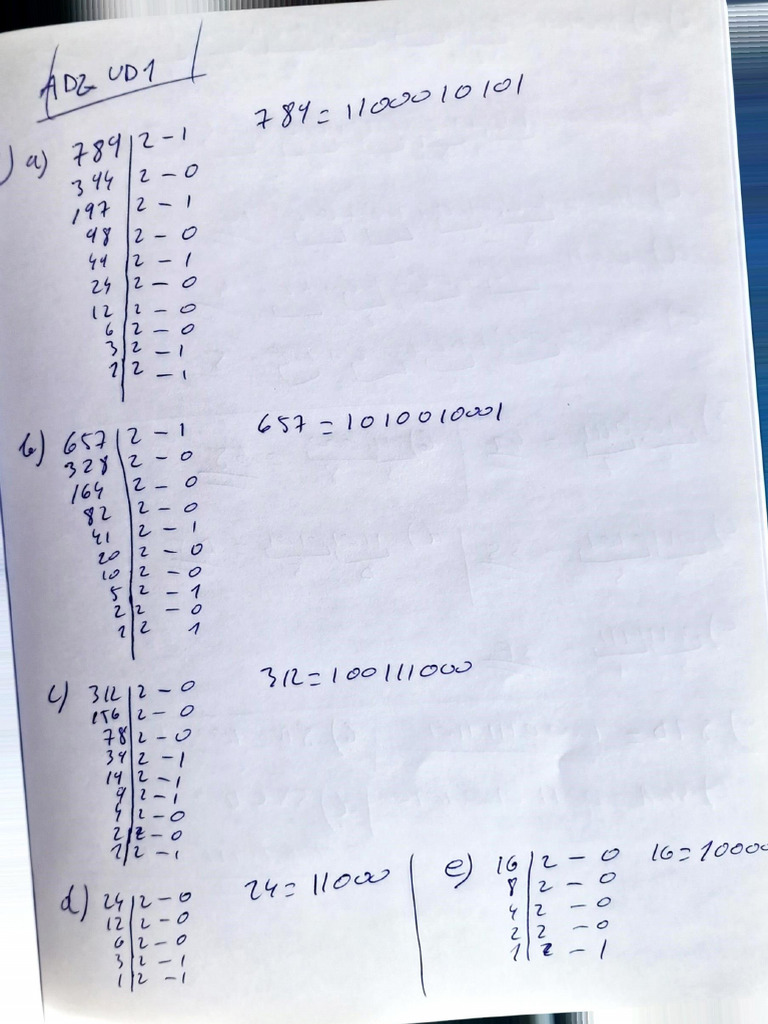 AD2 UD1
1) a) 789 | 2 - 1 789 = 1100010101
394 | 2 - 0
197 | 2 - 1
98 | 2 - 0
49 | 2 - 1
24 | 2 - 0
12 | 2 - 0
6 | 2 - 0
3 | 2 - 1
1 | 2 - 1
b) 657 | 2 - 1 657 = 1010010001
328 | 2 - 0
164 | 2 - 0
82 | 2 - 0
41 | 2 - 1
20 | 2 - 0
10 | 2 - 0
5 | 2 - 1
2 | 2 - 0
1 | 2 1
c) 312 | 2 - 0 312 = 100111000
156 | 2 - 0
78 | 2 - 0
39 | 2 - 1
19 | 2 - 1
9 | 2 - 1
4 | 2 - 0
2 | 2 - 0
1 | 2 - 1
d) 24 | 2 - 0 24 = 11000
12 | 2 - 0
6 | 2 - 0
3 | 2 - 1
1 | 2 - 1
e) 16 | 2 - 0 16 = 10000
8 | 2 - 0
4 | 2 - 0
2 | 2 - 0
1 | 2 - 1